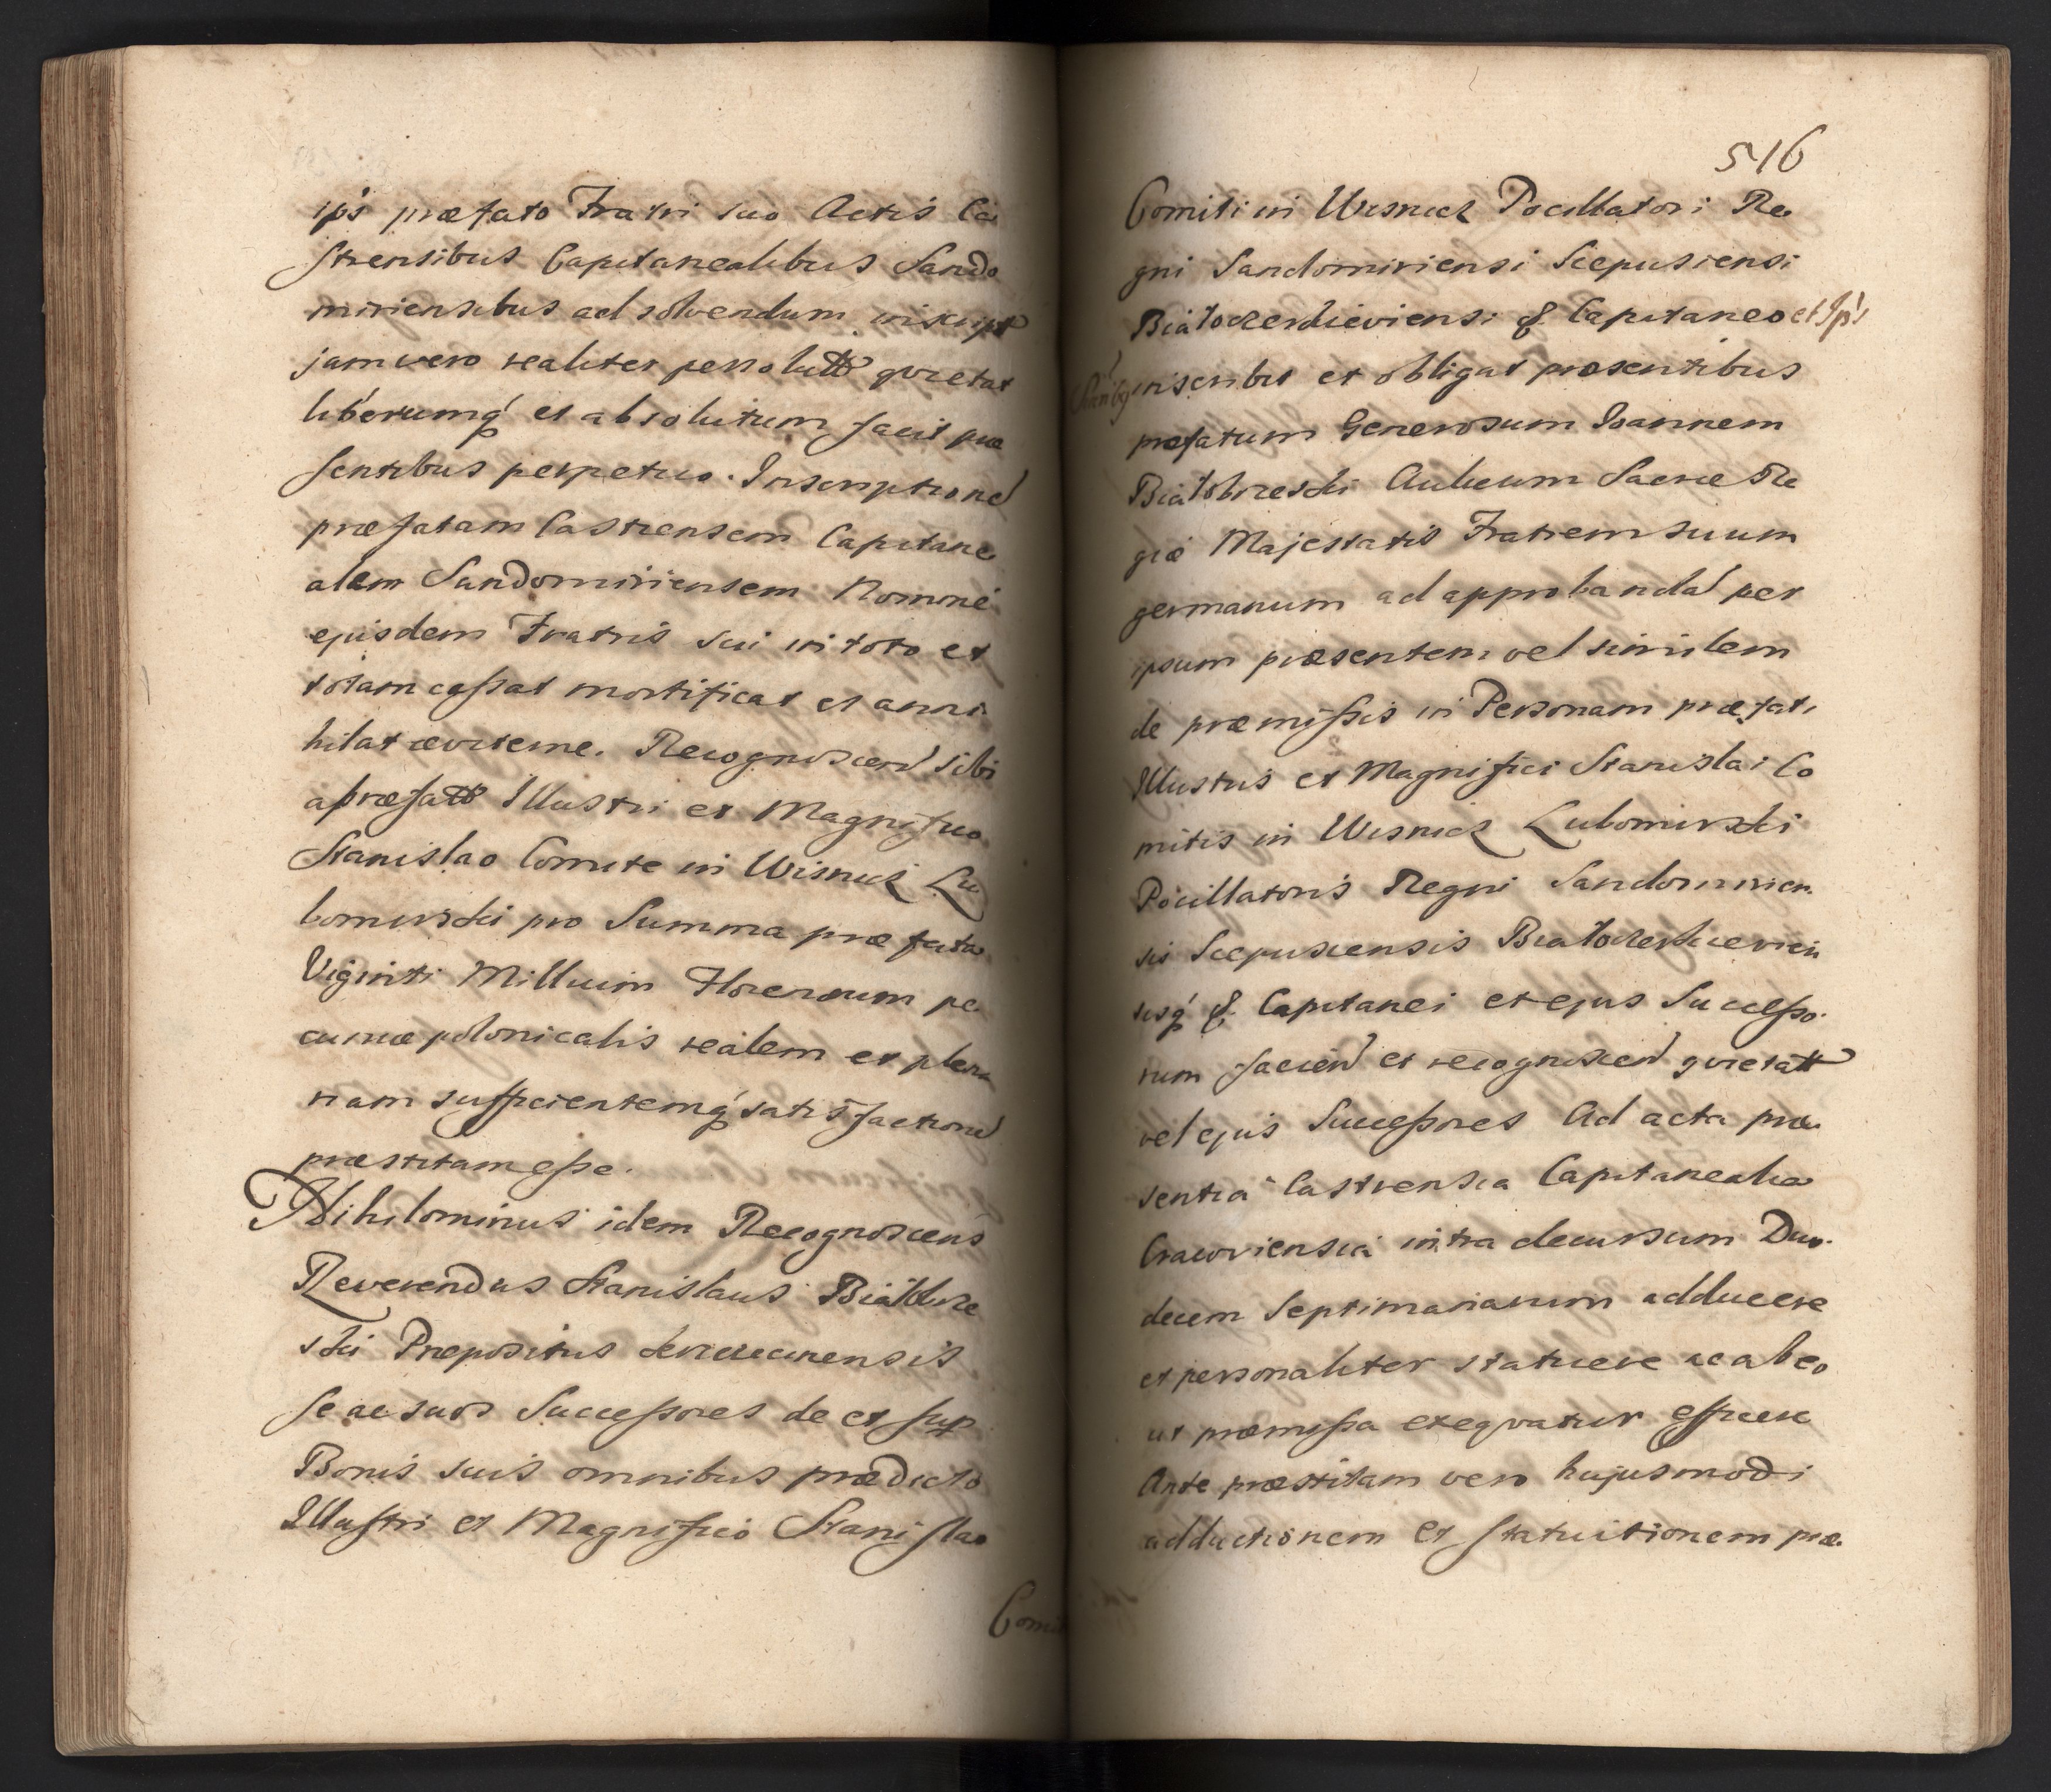 ips præfato Fratri suo Actis Ca
strensibus Capitanealibus Sando
miriensibus ad solvendum inscript
jam vero realiter persolutt qvietat
liberumq́ et absolutum facit præ
sentibus perpetuo. Inscription̄e
præfatam Castrensem Capitane
alem Sandomiriensem Nomine
ejusdem Fratris sui in toto et
totam cassat mortificat et anni
hilat æviterne. Recognoscend sibi
a præfatto Illustri et Magnifico
Stanislao Comite in Wisnicz Lu
bomirski pro Summa præfata
Viginti Millium Florenorum pe
cuniæ polonicalis realem et plena
riam sufficientemq́ satisfaction̄e
præstitam esse.
Nihilominus idem Recognoscens
Reverendus Stanislaus Białobrze
ski Præpositus
se ac suos Successores de et sup
Bonis suis omnibus prædicto
Illustri et Magnifico Stanislao
Comit
516
Comiti in Wisnicz Pocillatori Re
gni Sandomiriensi Scepusiensi
Białocerkieviensi & Capitaneo et Ips
inscribit et obligat præsentibus
præfatum Generosum Joannem
Białobrzeski Aulicum Sacræ Re
giæ Majestatis Fratrem suum
germanum ad approbanda per
ipsum præsentem vel similem
de præmissis in Personam præfati
Illustris et Magnifici Stanislai Co
mitis in Wisnicz Lubomirski
Pocillatoris Regni Sandomirien
sis Scepusiensis Białocerkievien
sisq́ & Capitanei et ejus Successo
rum facien̄ et recognoscen̄ qvietatt
vel ejus Successores Ad acta præ
sentia Castrensia Capitanealia
Cracoviensia intra decursum Duo
decem Septimanarum adducere
et personaliter statuere ac ab eo
ut præmissa exeqvatur efficere
Ante præstitam vero hujusmodi
adductionem et statuitionem præ